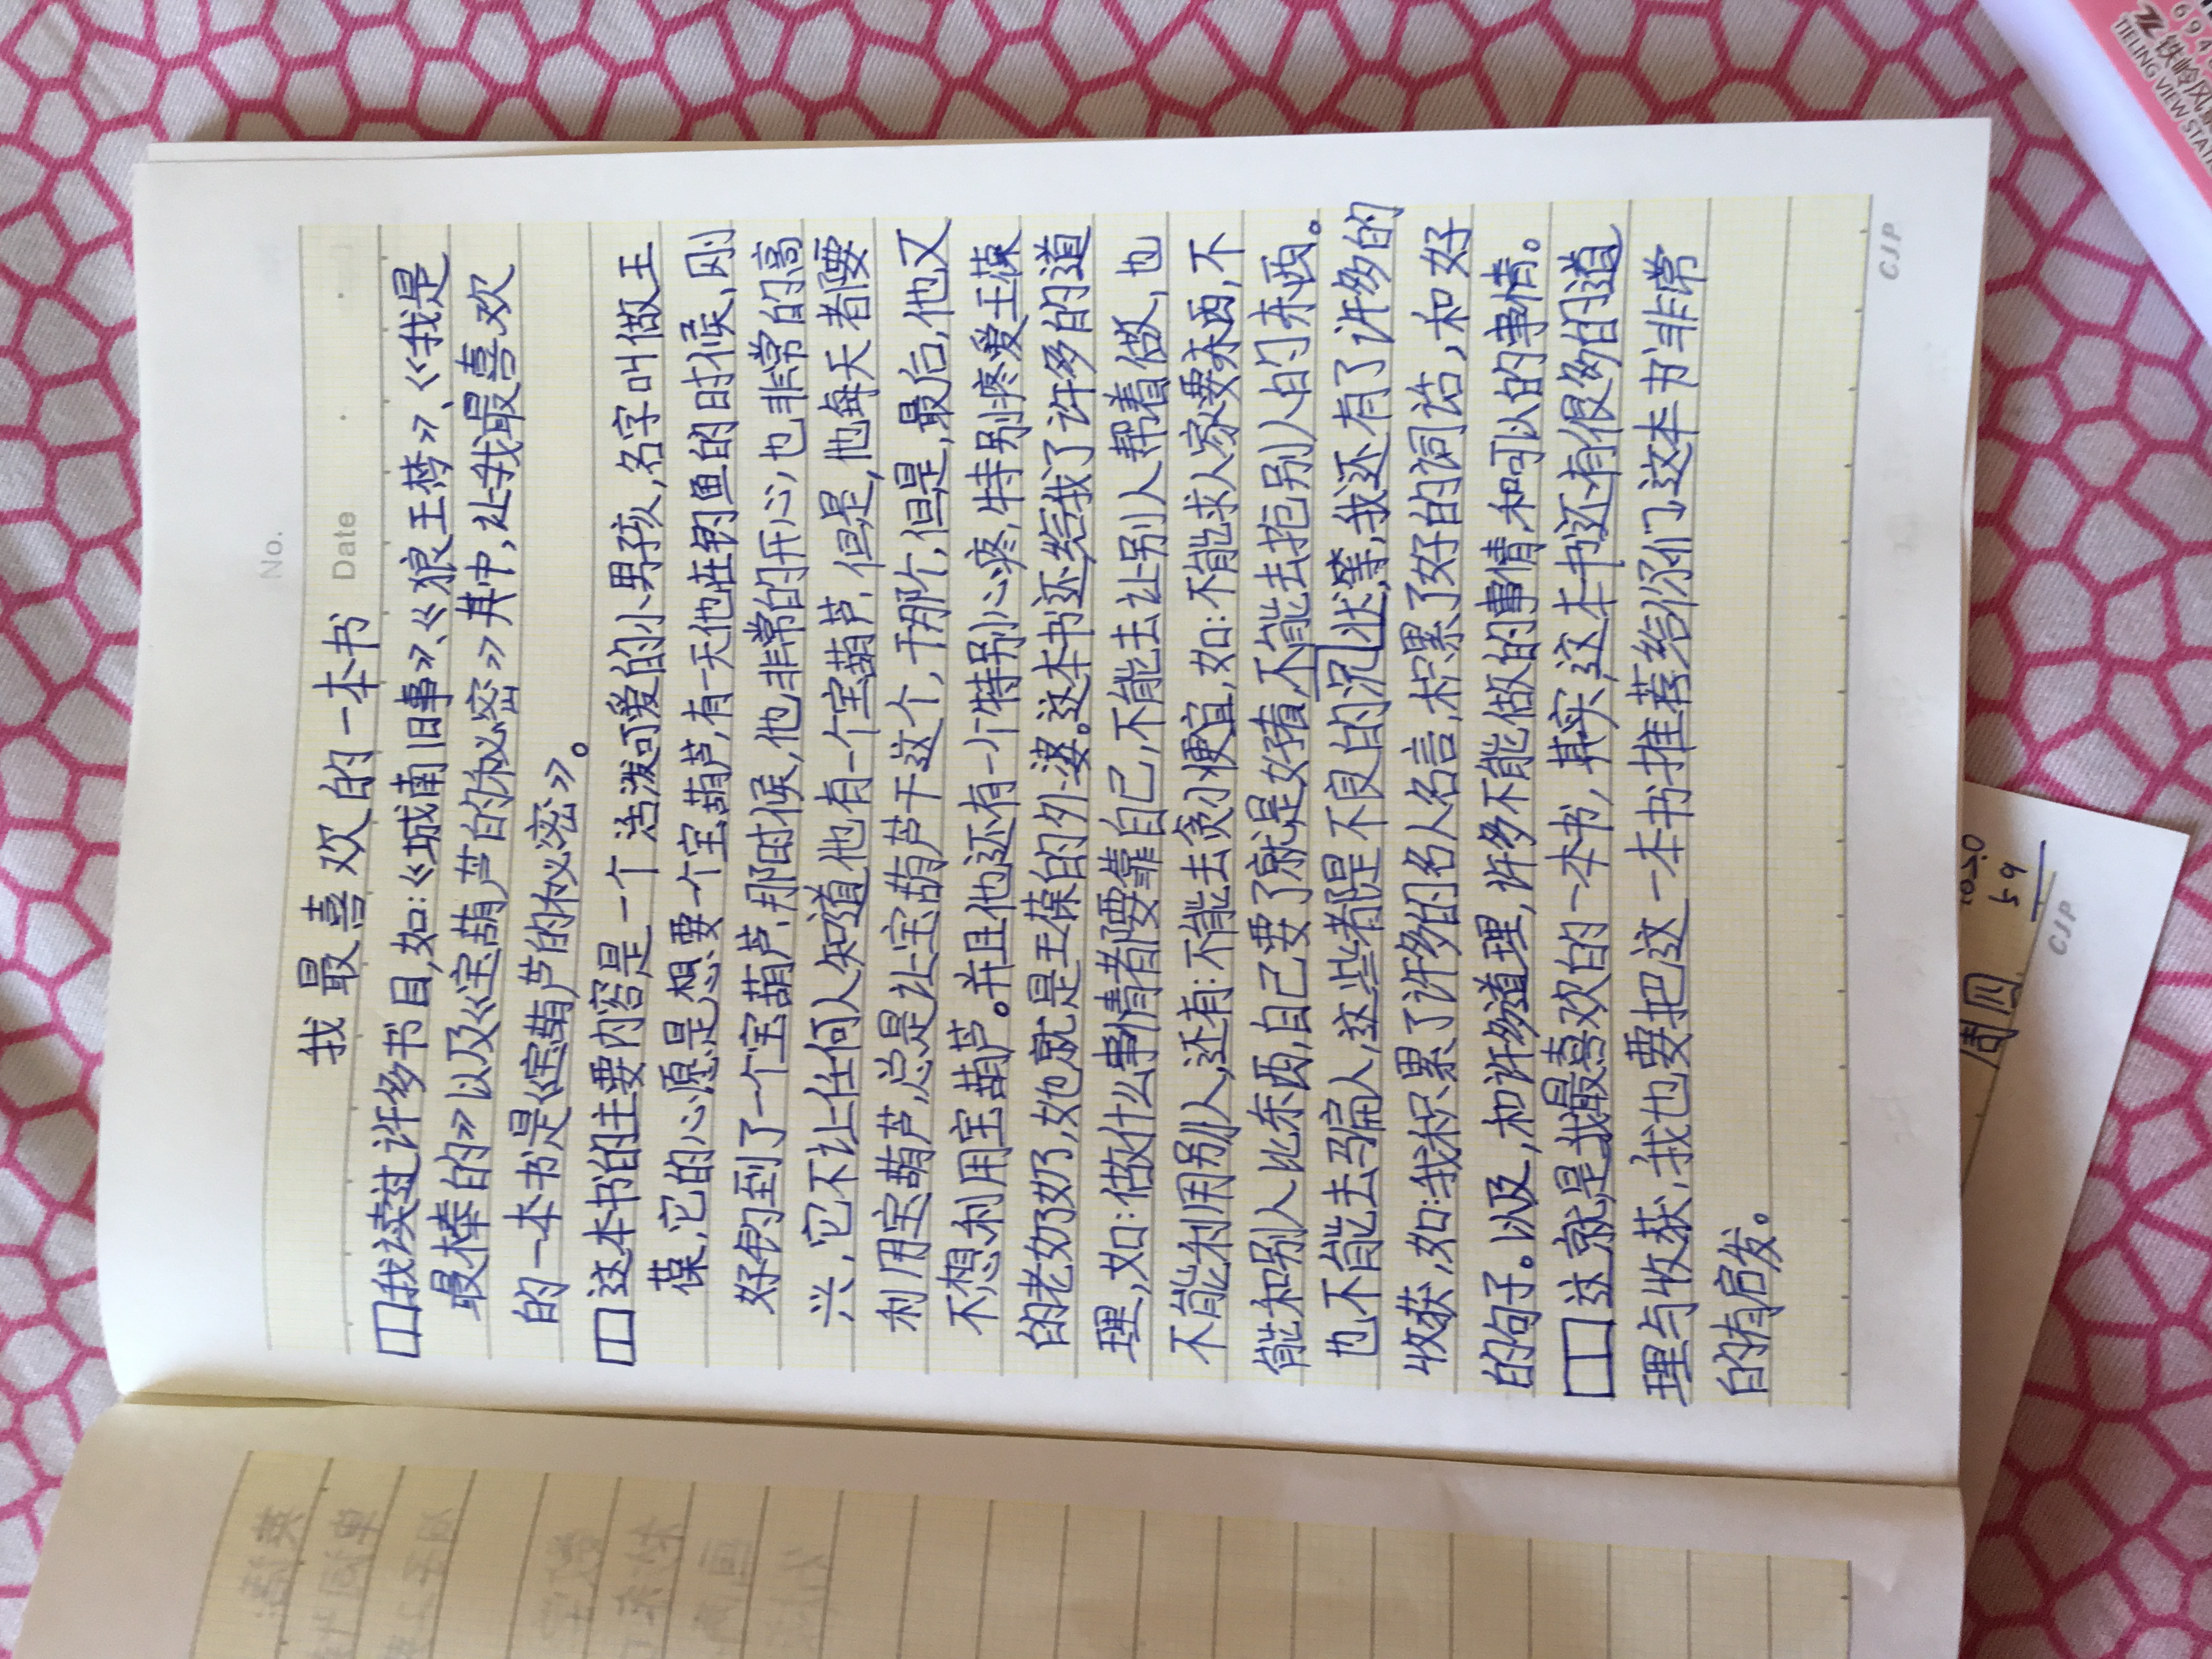 No.
Date
我最喜欢的一本书
我读过许多书目,如:《城南旧事》、《狼王梦》、《我是
最棒的》以及《宝葫芦的秘密》其中,让我最喜欢
的一本书是《宝葫芦的秘密》。
这本书的主要内容是一个活泼可爱的小男孩,名字叫做王
葆,它的心愿是想要一个宝葫芦,有一天他在钓鱼的时候,刚
好钓到了一个宝葫芦,那时候,他非常的开心,也非常的高
兴,它不让任何人知道他有一个宝葫芦,但是,他每天都要
利用宝葫芦,总是让宝葫芦干这个,干那个,但是,最后,他又
不想利用宝葫芦。并且他还有一个特别心疼,特别疼爱王葆
的老奶奶,她也就是王葆的外婆。这本书还给我了许多的道
理,如:做什么事情都要靠自己,不能去让别人帮着做,也
不能利用别人,还有:不能去贪小便宜,如:不能求人家要东西,不
能和别人比东西,自己要了就是好看,不能去抢别人的东西。
也不能去骗人,这些都是不良的况状等,我还有了许多的
收获,如:我积累了许多的名人名言,积累了好的词语,和好
的句子。以及,和许多道理,许多不能做的事情,和可以的事情。
这就是我最喜欢的一本书,其实这本书还有很多的道
理与收获,我也要把这一本书推荐给你们,这本书非常
的有启发。
CJP
周四
2020
59
CJP
694
铁岭风
TIELING VIEW STAT